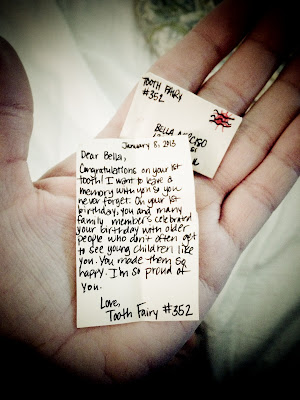 TOOTH FAIRY
#352
BELLA
January 8, 2013
Dear Bella,
Congratulations on your 1st
tooth! I want to leave a
memory with you so you
never forget. On your 1st
birthday, you and many
family member's celebrated
your birthday with older
people who don't often get
to see young children like
you. You made them so
happy. I'm so proud of
you.
Love,
Tooth Fairy #352